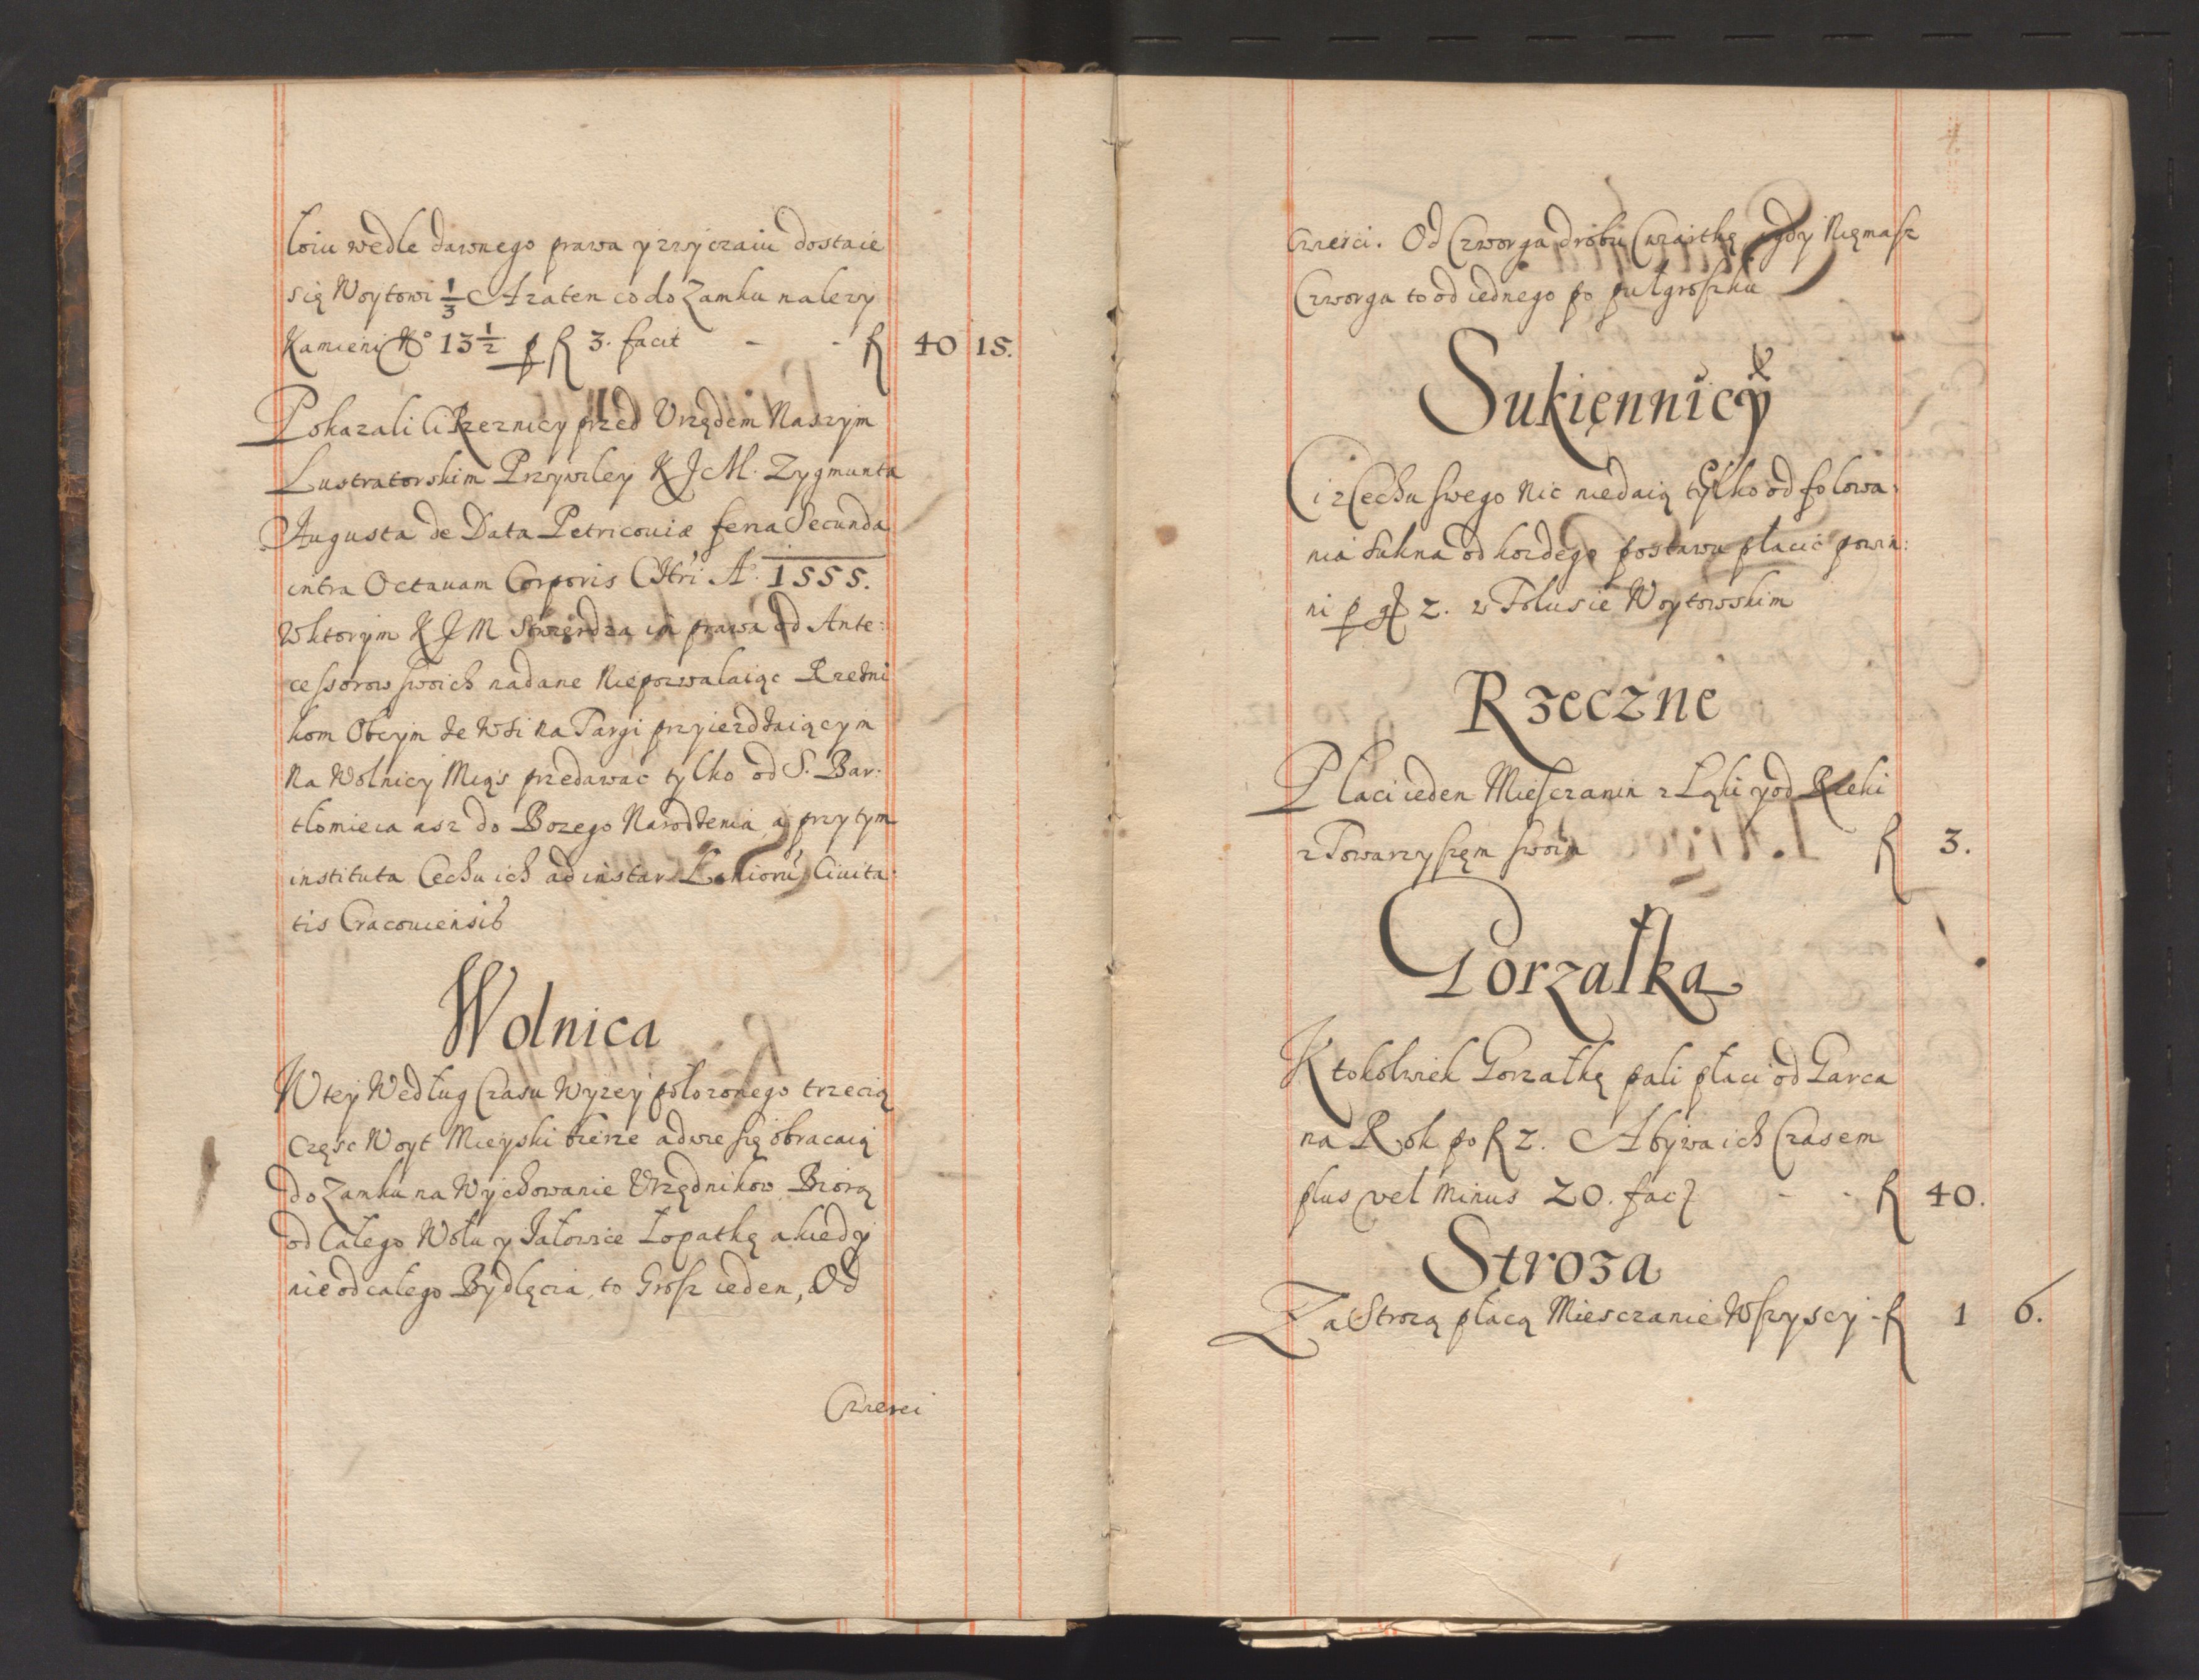 łoiu wedle dawnego prawa y zwyczaiu dostaie
się Woytowi 1/3 A zaten co do Zamku nalezy
Kamieni No 13 1/2 p f 3. facit - - f 40 15.
Pokazali Ci Rzeznicy przed Vrzędem Naszym
Lustratorskim Przywiley K J M. Zygmunta
Augusta de Data Petricouiæ feria Secunda
intra Octauam Corporis Chtri Ao. 1555.
W ktorym K J M Stwierdza im prawa od Ante:
cessorow swoich nadane Niepozwalaiąc Rzeźni
kom Obcym ze Wsi na Targi przyiezdzaiącym
Na Wolnicy Mięs przedawac tylko od S. Bar:
tłomieia asz do Bozego Narodzenia, a przy tym
instituta Cechu ich ad instar Lanioru Ciuita:
tis Cracouiensis
Wolnica
W tey Według Czasu Wyzey połozonego trzecią
Częsc Woyt Mieyski bierze a dwie się obracaią
do Zamku na Wychowanie Vrzędnikow. Biorą
od Całego Wołu y Jałowice Łopatkę a kiedy
nie od całego Bydlęcia, to Grosz ieden, Od
Czwerci
Czwerci. Od Czworga drobiu Cwiartkę, gdy Niemasz
Czworga to od iednego po pułgroszku
Sukięnnicy
Ci z Cechu swego Nic niedaią tylko od folowa:
nia Sukna od kozdego postawu płacić powin:
ni p gr 2. w Folusie Woytowskim
Rzeczne
Płaci ieden Miesczanin z Łąki y od Rzeki
z Towarzyszęm swoim f 3.
Gorzałka
Ktokolwiek Gorzałkę pali płaci od Garca
na Rok po f 2. A bywa ich Czasem
plus vel minus 20. facit - - f 40.
Stroza
Za Strozą płacą Miesczanie Wszyscy - f 1 6.